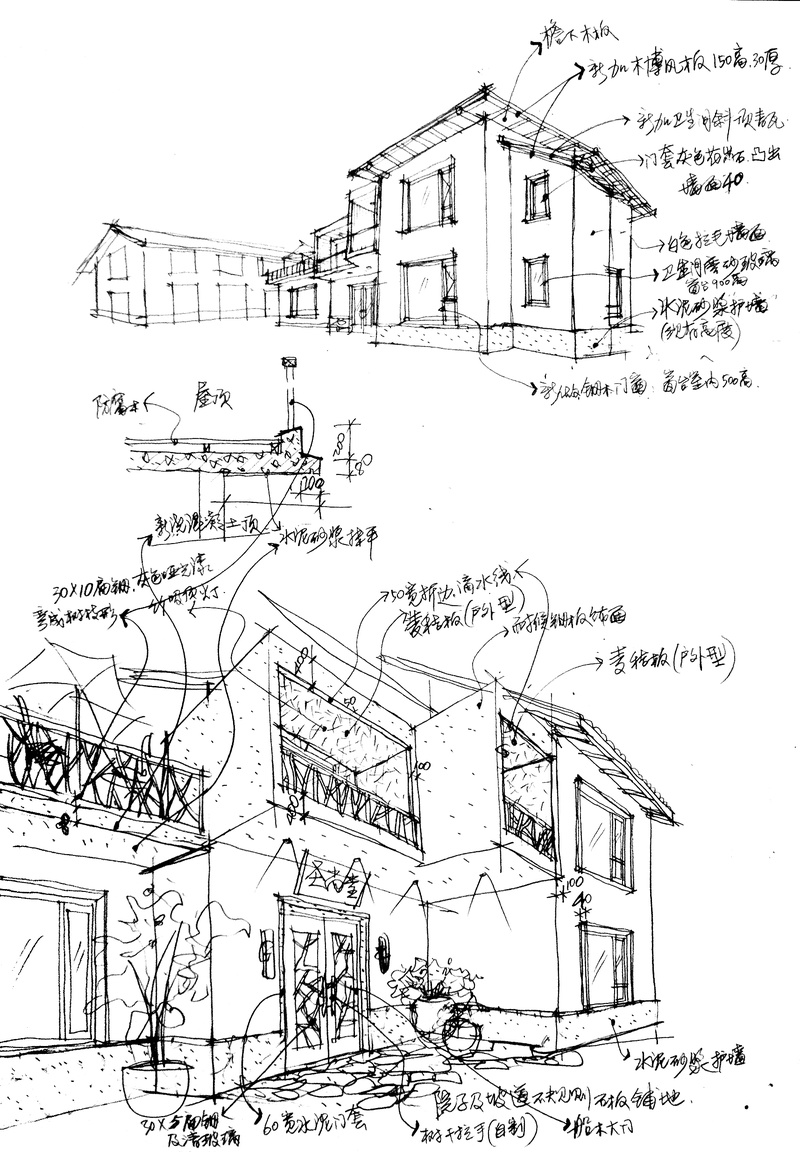 檐下木板
新加木博风板150高.30厚
新加卫生间斜顶青瓦
门套灰色花岗石.凸出
墙面40.
白色拉毛墙面
卫生间磨砂玻璃
窗台900高
水泥砂浆护墙
高度)
木门窗.窗台室内500高.
防腐木
屋顶
200
80
200
新浇混凝土顶
水泥砂浆抹平
30×10扁钢.灰色哑光漆
弯成树枝形
灯.
50宽折边.滴水线
麦秸板(户外型)
耐候钢板饰面
麦秸板(户外型)
400
50
100
400
80
100
40
堂
水泥砂浆护墙
院子及坡道不规则石板铺地.
30×5扁钢
及清玻璃
60宽水泥门套
树干拉手(自制)
船木大门